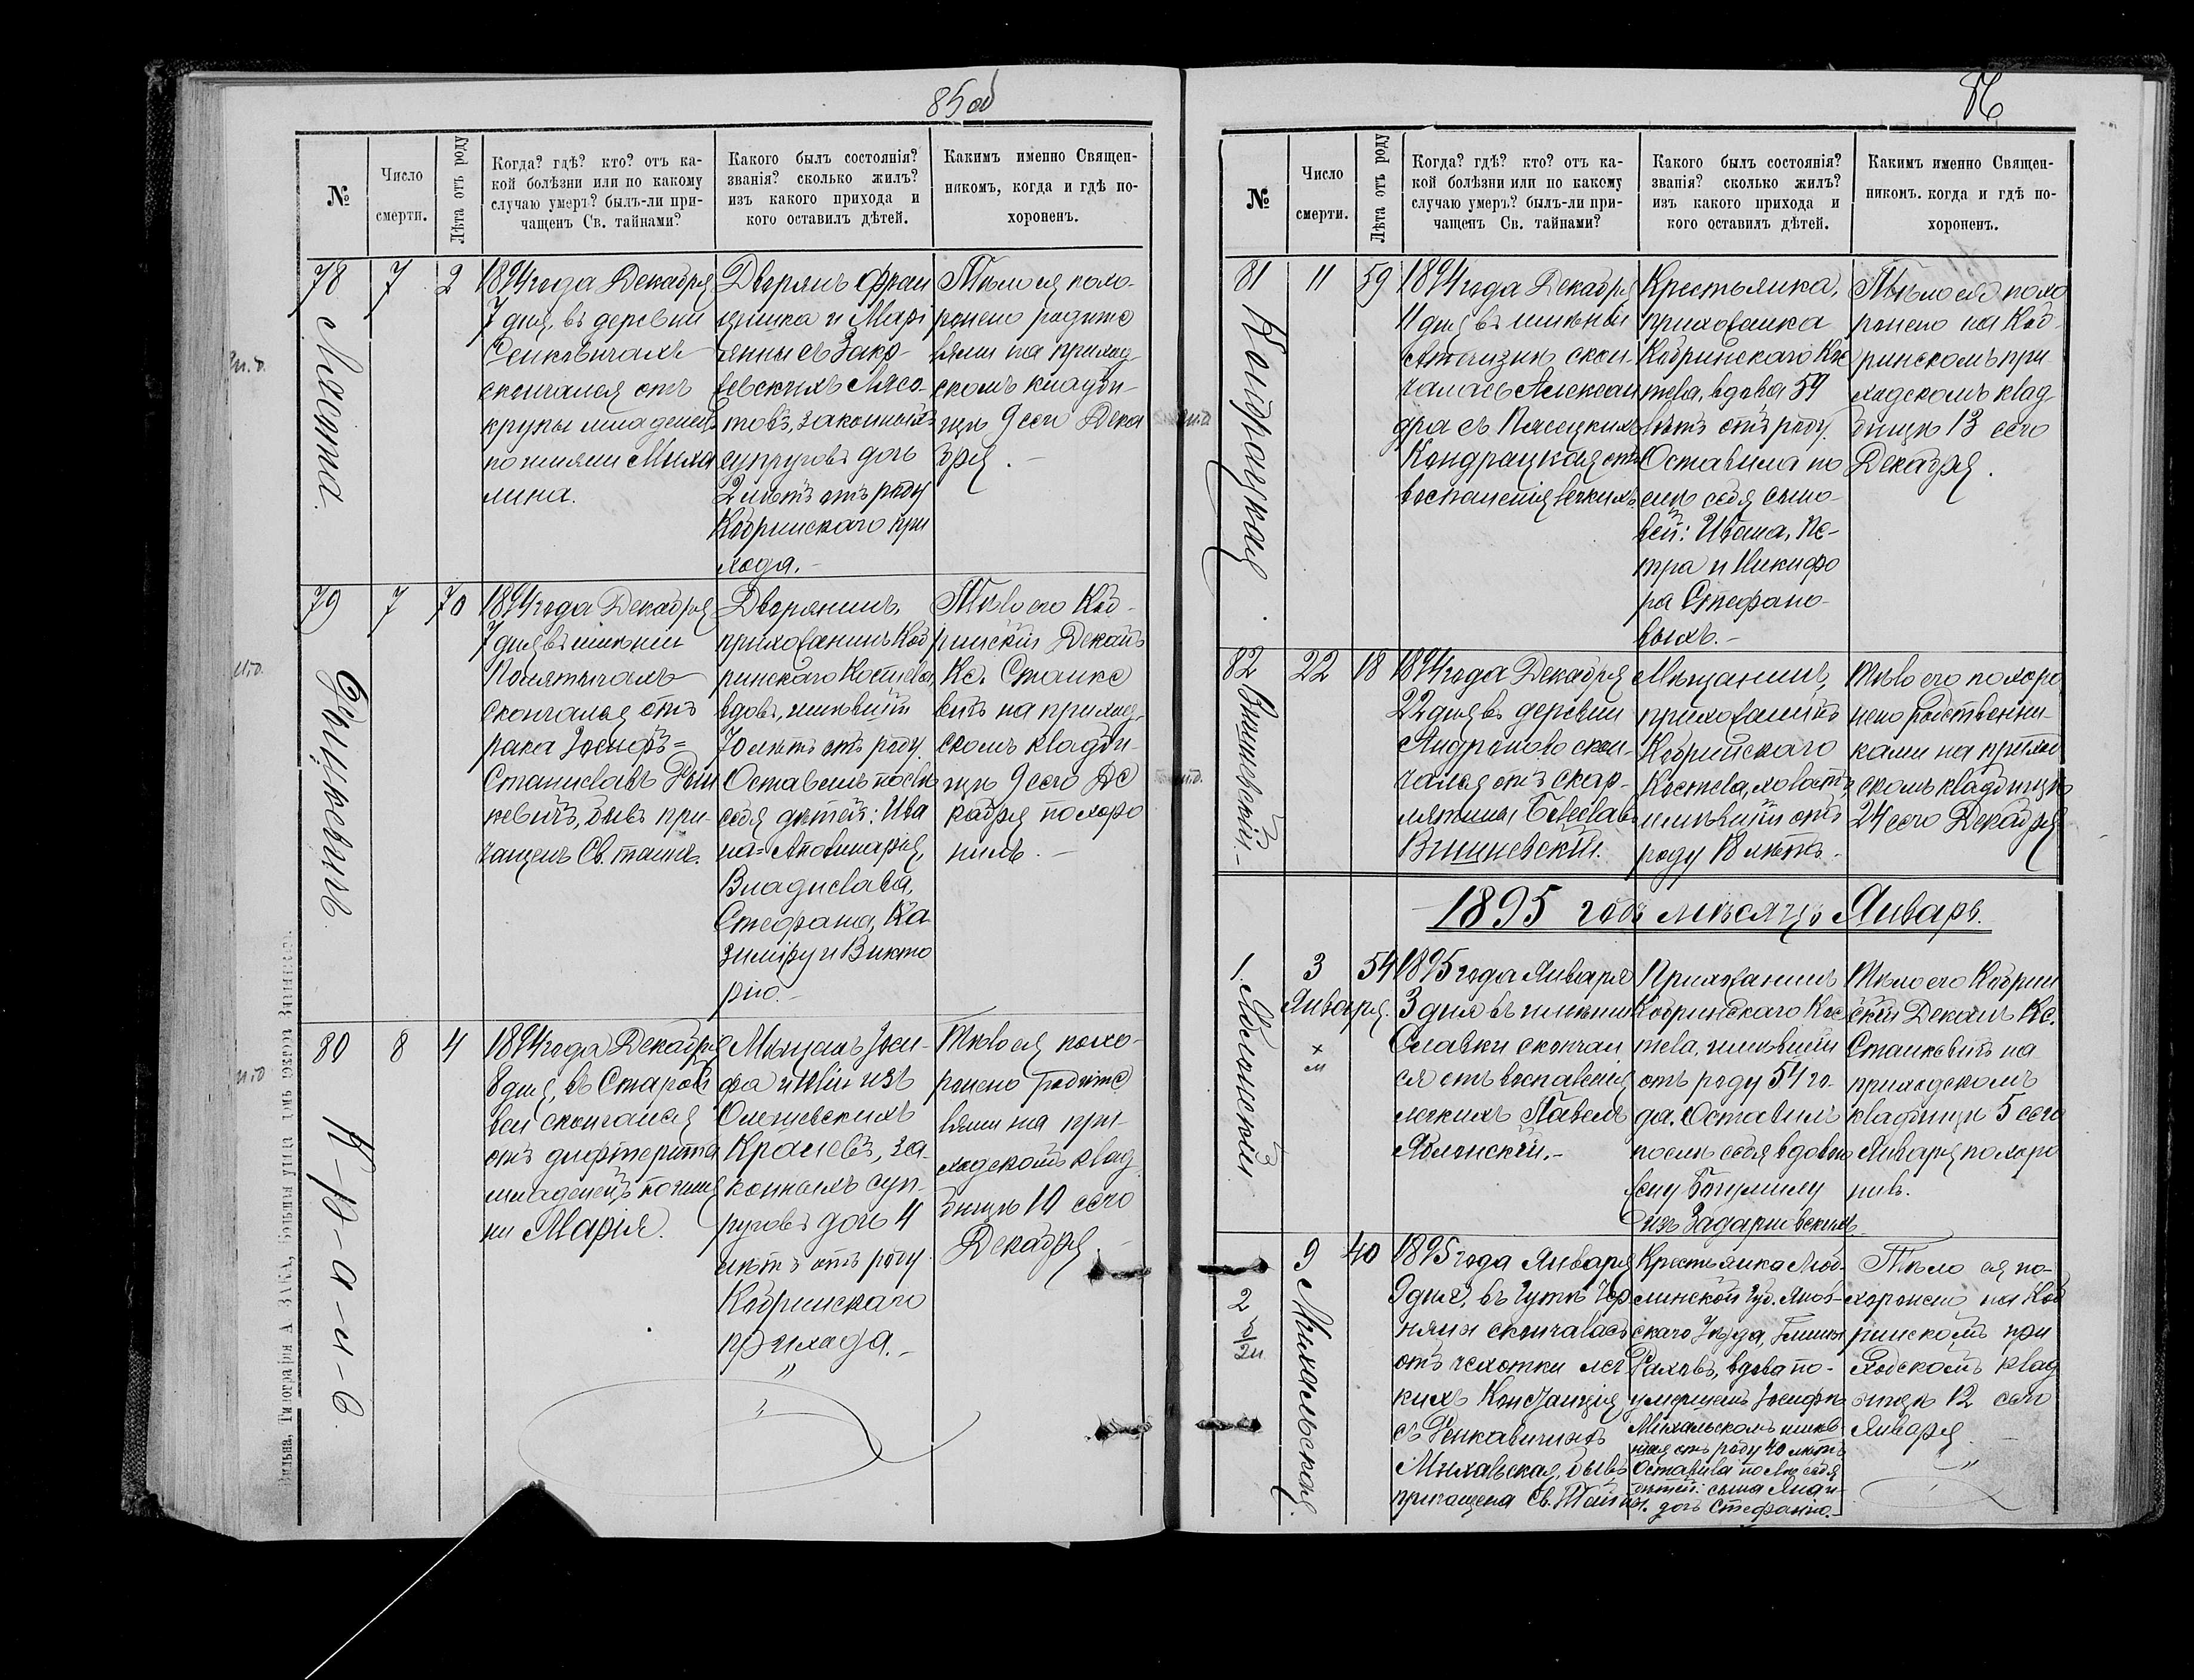 85об
№
Число
смерти.
Лѣта отъ роду
Когда? гдѣ? кто? отъ ка-
кой болѣзни или по какому
случаю умеръ? былъ-ли при-
чащенъ Св. тайнами?
Какого былъ состоянія?
званія? сколько жилъ?
изъ какого прихода и
кого оставилъ дѣтей.
Какимъ именно Священ-
никомъ, когда и гдѣ по-
хороненъ.
78
Лясота.
7
2
1894 года Декабря
7 дня, въ деревни
скончался отъ
крупы младенецъ
по имяни Миха
лина.
Дворянъ Фран
цишка и Марі
янны съ Зако-
Лясо-
товъ, законныхъ
супруговъ дочь
2 лѣтъ отъ роду
Кобринскаго при
хода.-
Тѣло ея похо-
ронено родите
лями на приход
скомъ кладби-
щѣ 9 сего Дека
бря.-
79
7
70
1894 года Декабря
7 дня въ имѣніи
скончался отъ
рака Іосифъ=
Станиславъ
кевичъ, бывъ при-
чащенъ Св. таинъ.
Дворянинъ,
прихожанинъ Коб
ринскаго Костела,
вдовъ, имѣвшій
70 лѣтъ отъ роду.
Оставилъ послѣ
себя дѣтей: Ива
на=Аполинарія,
Владислава,
Стефана, Ка
зиміру и Викто
рію.-
Тѣло его Коб-
ринскій Деканъ
Кс. Станке
вичъ на приход
скомъ кладби-
щѣ 9 сего Де
кабря похоро
нилъ.-
80
К-р-а-л-е-
8
4
1894 года Декабря
8 дня, въ
скончался
отъ дифтерита
младенецъ по имя
ни Марія.
Мѣщанъ Іоси-
фа и Юліи изъ
Кралевъ, за-
конныхъ суп-
руговъ дочь 4
лѣтъ отъ роду
Кобринскаго
прихода.-
Тѣло ея похо-
ронено родите
лями на при-
ходскомъ клад
бищѣ 10 сего
Декабря.-
Вильна, Типографія А. ЗАКА,
86
№
Число
смерти.
Лѣта отъ роду
Когда? гдѣ? кто? отъ ка-
кой болѣзни или по какому
случаю умеръ? былъ-ли при-
чащенъ Св. тайнами?
Какого былъ состоянія?
званія? сколько жилъ?
изъ какого прихода и
кого оставилъ дѣтей.
Какимъ именно Священ-
никомъ. когда и гдѣ по-
хороненъ.
81
Кондрацкая.
11
59
1894 года Декабря
11 дня въ имѣніи
скон-
чалась Алексан
дра съ Пасецкихъ
Кондрацкая отъ
воспаленія легкихъ.
Крестьянка,
прихожанка
Кобринскаго Кос
тела, вдова 59
лѣтъ отъ роду.
Оставила по
слѣ себя сыно-
вей: Ивана, Пе-
тра и Никифо
ра Стефано-
выхъ.-
Тѣло ея похо
ронено на Коб-
ринскомъ при
ходскомъ клад
бищѣ 13 сего
Декабря.
82
Вишневскій.-
22
18
1894 года Декабря
22 дня въ деревни
Андроново скон-
чался отъ скар-
лятины Болеславъ
Вишневскій.
Мѣщанинъ,
прихожанинъ
Кобринскаго
Костела, холостъ,
имѣвшій отъ
роду 18 лѣтъ.-
Тѣло его похоро
нено родственни-
ками на приход
скомъ кладбищѣ
24 сего Декабря
1895 годъ мѣсяцъ Январь.
1.
Яблонскій
3
Января.
54
1895 года Января
3 дня въ имѣніи
Славки скончал
ся отъ воспаленія
легкихъ Павелъ
Яблонскій.-
Прихожанинъ
Кобринскаго Кос
тела, имѣвшій
отъ роду 54 го-
да. Оставилъ
послѣ себя вдовою
жену Богумилу
изъ
Тѣло его Кобрин
скій Деканъ Кс.
Станкевичъ на
приходскомъ
кладбищѣ 5 сего
Января похоро
нилъ.
2
Михальская.
9
40
1895 года Января
9 дня, въ
скончалась
отъ чахотки лег
кихъ Констанція
съ
Михальская, бывъ
причащена Св. Тайнъ.
Крестьянка Люб-
линской Губ. Янов-
скаго Уѣзда, Гмины
вдова по
умершемъ Іосифѣ
Михальскомъ имѣв
шая отъ роду 40 лѣтъ
Оставила послѣ себя
дѣтей: сына
дочь Стефанію.-
Тѣло ея по-
хоронено на Коб
ринскомъ при
ходскомъ клад
бищѣ 12 сего
Января.-